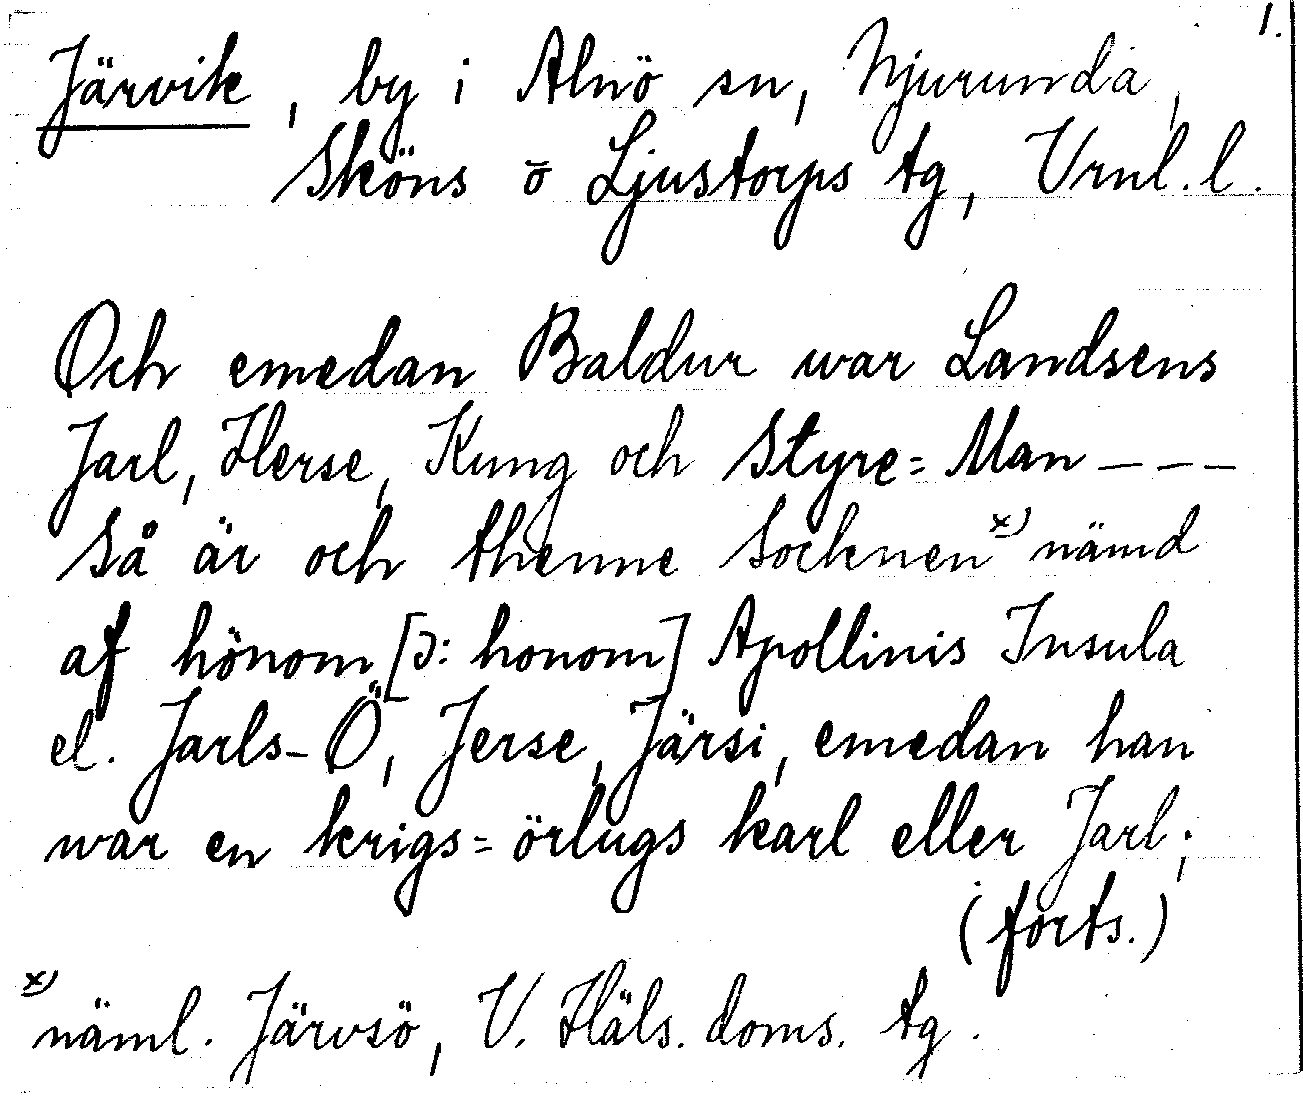 1.
Järvik, by i Alnö sn, Njurunda,
Sköns o Ljustorps tg, Vrnl. l.
Och emedan Baldur war Landsens
Jarl, Herse, Kung och Styre=Man – – –
Så är och thenne Socknen x) nämd
af hönom [ɔ: honom] Apollinis Insula
el. Jarls-Ö, Jerse, Järsi, emedan han
war en krigs= örlugs karl eller Jarl;
(forts.)
x) näml. Järvsö, V. Häls. doms. tg.